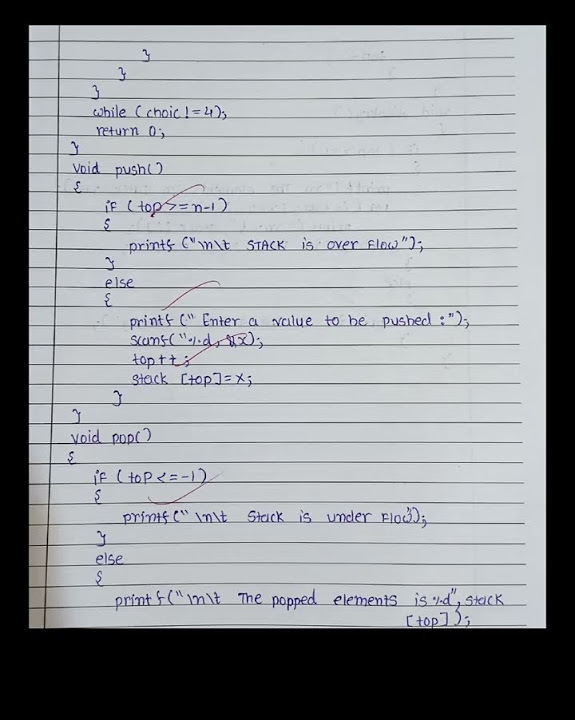 }
}
}
while (choic != 4);
return 0;
}
void push()
{
if (top >= n-1)
{
printf ("\n\t STACK is over Flow");
}
else
{
printf (" Enter a value to be pushed :");
scanf("%d, &x);
top++;
stack [top]=x;
}
}
void pop()
{
if (top <= -1)
{
printf (" \n\t Stack is under Flow");
}
else
{
printf ("\n\t The popped elements is %d", stack
[top]);